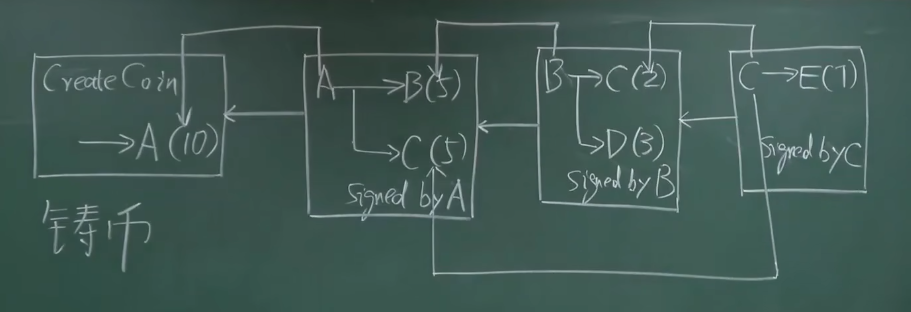 CreateCoin
→A(10)
A→B(5)
→C(5)
signed by A
B→C(2)
→D(3)
signed by B
C→E(7)
signed by C
铸币